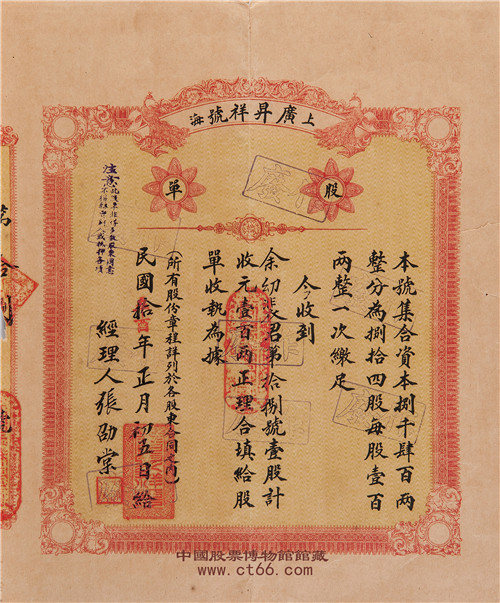 上廣昇祥號海
股單
本號集合資本捌千肆百兩
整分為捌拾四股每股壹百
兩整一次繳足
今收到
余幼君第拾捌號壹股計
收元壹百兩正理合填給股
單收執為據
(所有股份章程詳列於各股東合同之內)
民國拾年正月初五日給
經理人張劭棠
注意
多數股東同意
不得轉售別人或抵押各項
中國股票博物館館藏
www.ct66.com